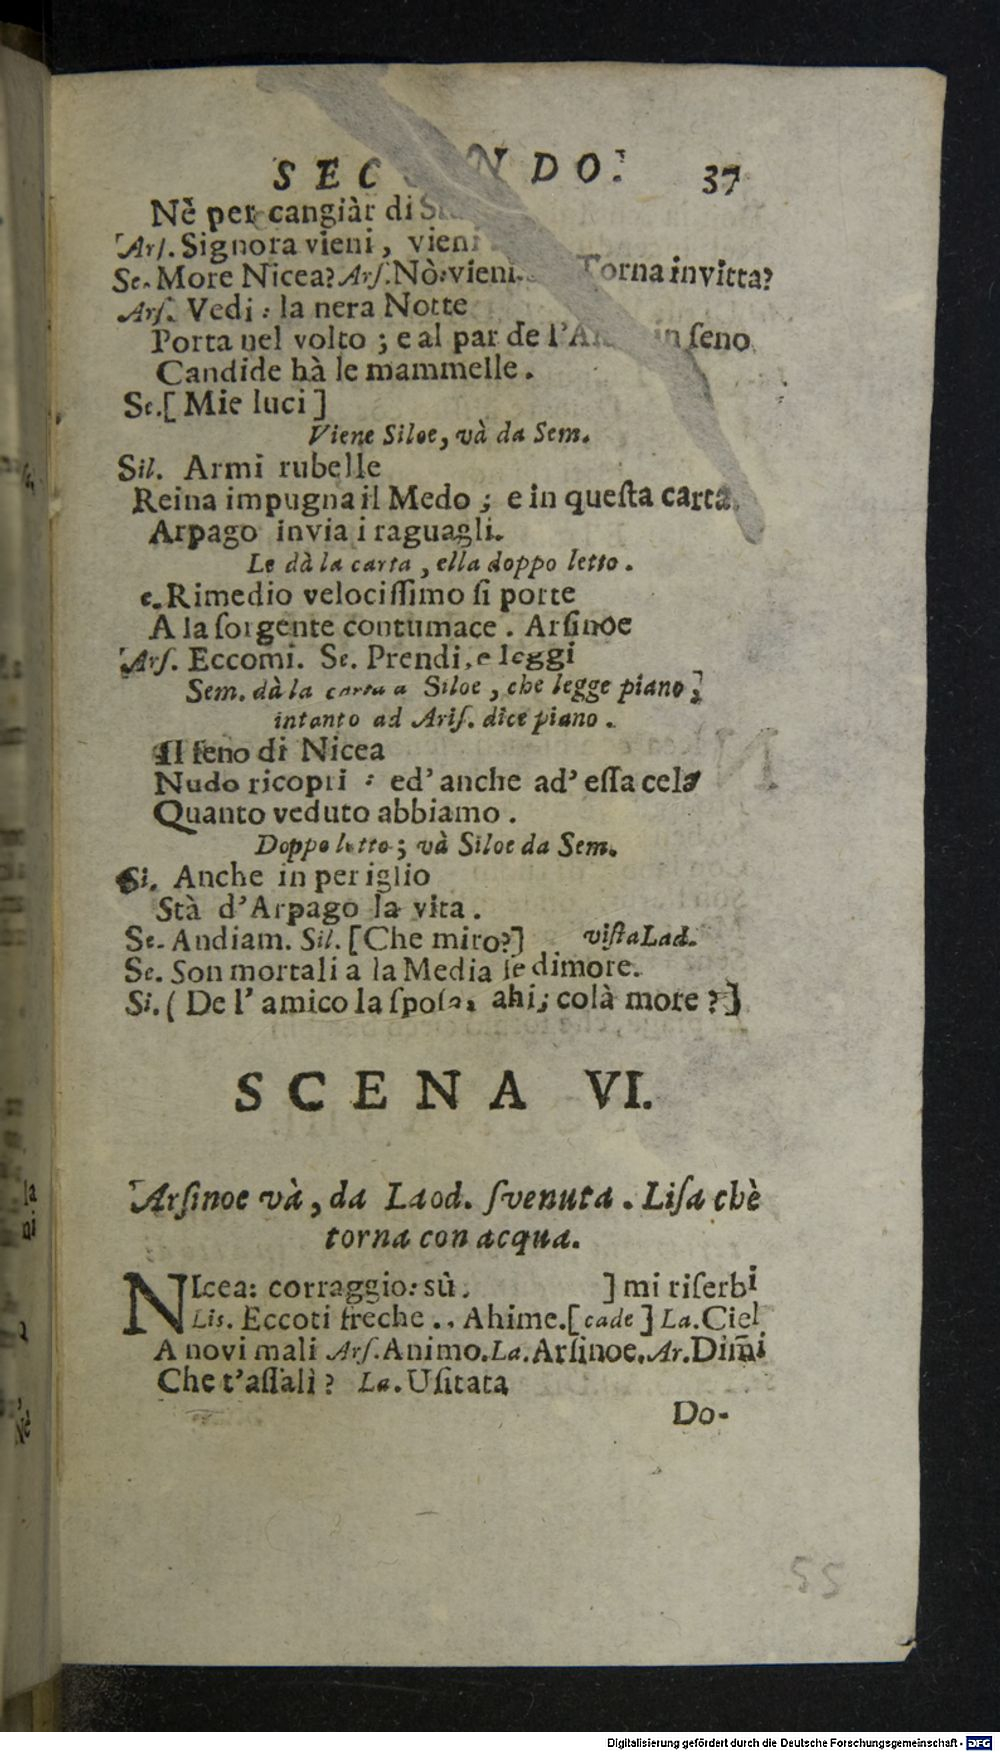 SECONDO. 37
Nè per cangiàr di
Ars. Signora vieni, vieni
Se. More Nicea? Arſ. Nò: vieni. Torna invitta?
Arſ. Vedi: la nera Notte
Porta nel volto; e al par de l' in ſeno
Candide hà le mammelle.
Se. [Mie luci]
Viene Siloe, và da Sem.
Sil. Armi rubelle
Reina impugna il Medo; e in queſta carta
Arpago invia i raguagli.
Le dà la carta, ella doppo letto.
e. Rimedio velociſſimo ſi porte
A la ſorgente contumace. Arſinoe
Arſ. Eccomi. Se. Prendi, e leggi
Sem. dà la carta a Siloe, che legge piano]
intanto ad Ariſ. dice piano.
Il ſeno di Nicea
Nudo ricopri: ed' anche ad' eſſa cela
Quanto veduto abbiamo.
Doppo letto; và Siloe da Sem.
Si. Anche in periglio
Stà d'Arpago la vita.
Se. Andiam. Sil. [Che miro?] viſta Lad.
Se. Son mortali a la Media le dimore.
Si. ( De l' amico la ſpoſa, ahi; colà more?]
SCENA VI.
Arſinoe và, da Laod. ſvenuta. Liſa chè
torna con acqua.
NIcea: corraggio: sù. ] mi riſerbi
Lis. Eccoti freche .. Ahime. [cade] La. Ciel
A novi mali Arſ. Animo. La. Arſinoe. Ar. Dim̃i
Che t'aſſalì? La. Uſitata
Do-
55
Digitalisierung gefördert durch die Deutsche Forschungsgemeinschaft - DFG